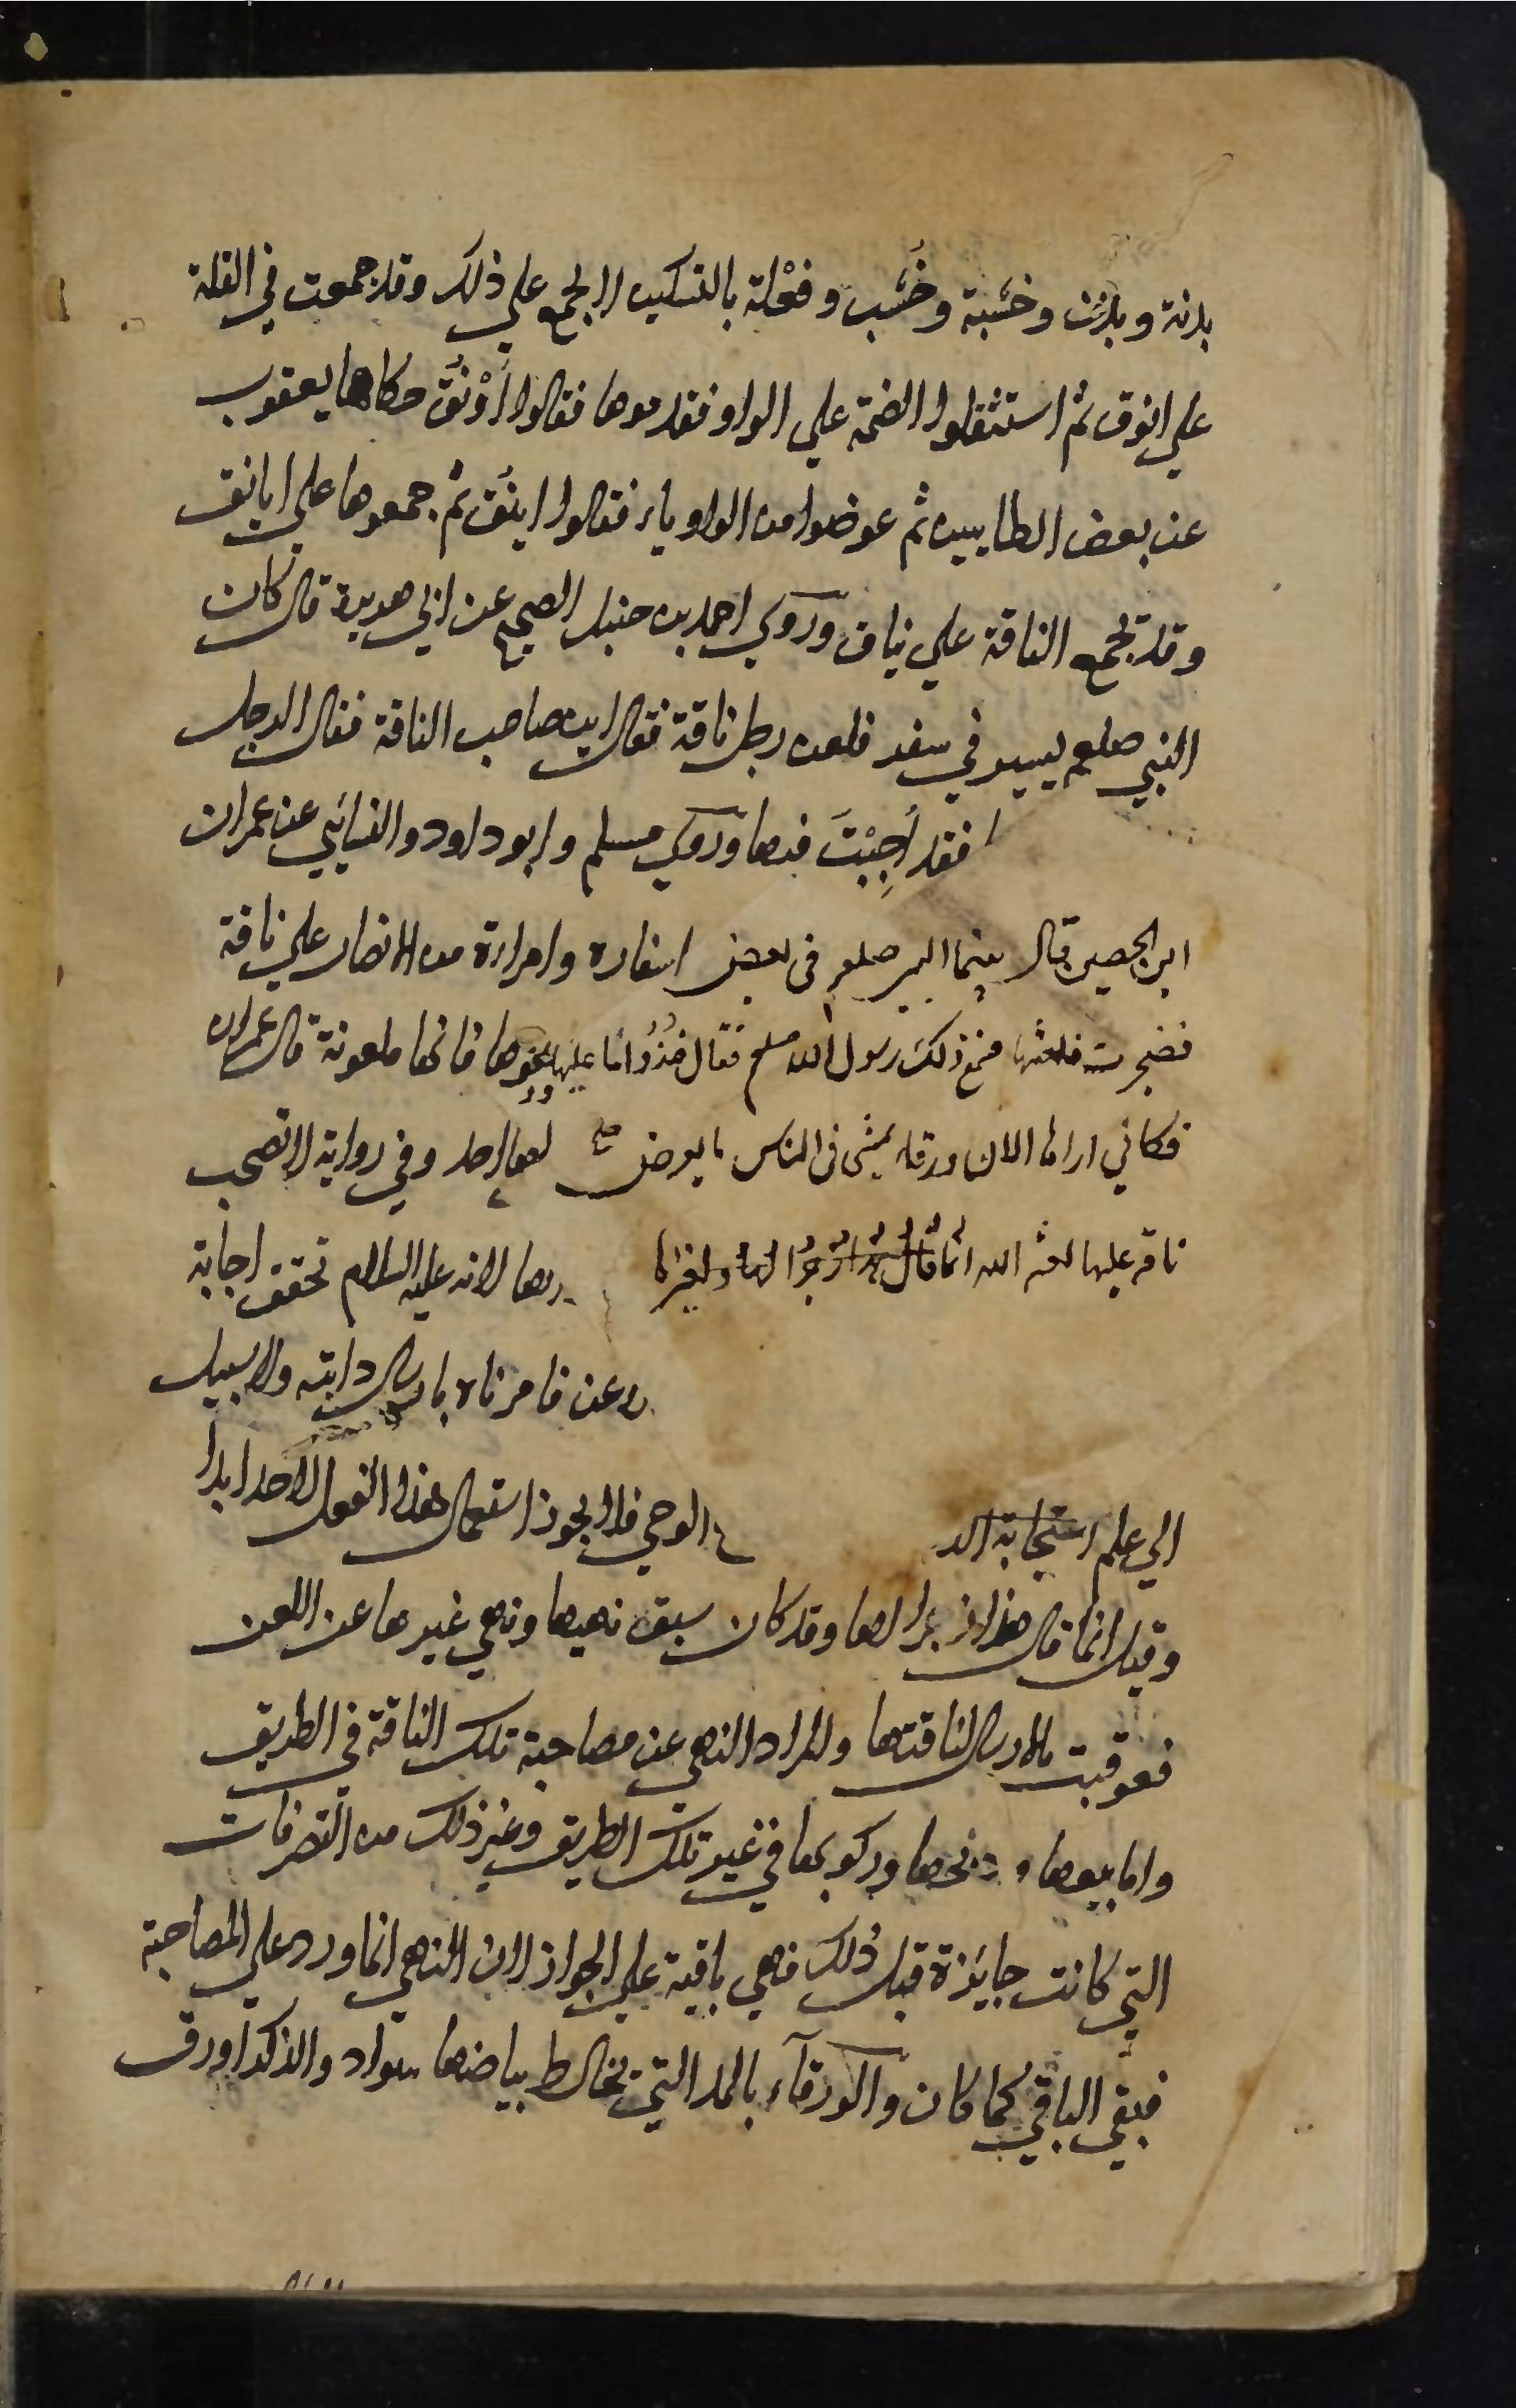 بدنة وبدن وخشبة وخُشب وفعْلة بالتسكين لا يجمع علي ذلك وقد جمعت في القلة
علي انوق ثم استثقلوا الضمة علي الواو فقدموها فقالوا أَوْنُق حكاها يعقوب
عن بعض الطاييين ثم عوضوا من الواو ياء فقالوا اينُق ثم جمعوها علي ايانق
وقد تجمع الناقة علي نياق وروي احمد بن حنبل الصحيح عن ابي هريرة قال كان
النبي صلعم يسير في سفر فلعن رجل ناقة فقال اين صاحب الناقة فقال الرجل
ا فقد أُجِبْتَ فيها وروي مسلم وابو داود والنسائي عن عمران
ابن الحصين قال بينما النبي صلعم في بعض اسفاره وامراة من الانصار علي ناقة
فضجرت فلعنتها فسمع ذلك رسول الله صلعم فقال خذُوا ما عليها ودعوها فانها ملعونة قال عمران
فكاني اراها الان ورقاء تمشي في الناس ما يعرض لها احد وفي رواية لا تصحب
ناقة عليها لعنة الله انما قال هذا زجرا لها ولغيرها لانه عليه السلام تحقق اجابة
فامرناه بارسال دابته ولا سبيل
الي علم استجابة الد الوحي فلا يجوز استعمال هذا الفعل لاحد ابدا
وقيل انما قال هذا زجرا لها وقد كان سبق نهيها ونهي غيرها عن اللعن
فعوقبت بالارسال لناقتها والمراد النهي عن مصاحبة تلك الناقة في الطريق
واما بيعها وذبحها وركوبها في غير تلك الطريق وغير ذلك من التصرفات
التي كانت جايزة قبل ذلك فهي باقية علي الجواز لان النهي انما ورد علي المصاحبة
فبقي الباقي كما كان والورقآء بالمد التي يخالط بياضها سواد والذكر اورق